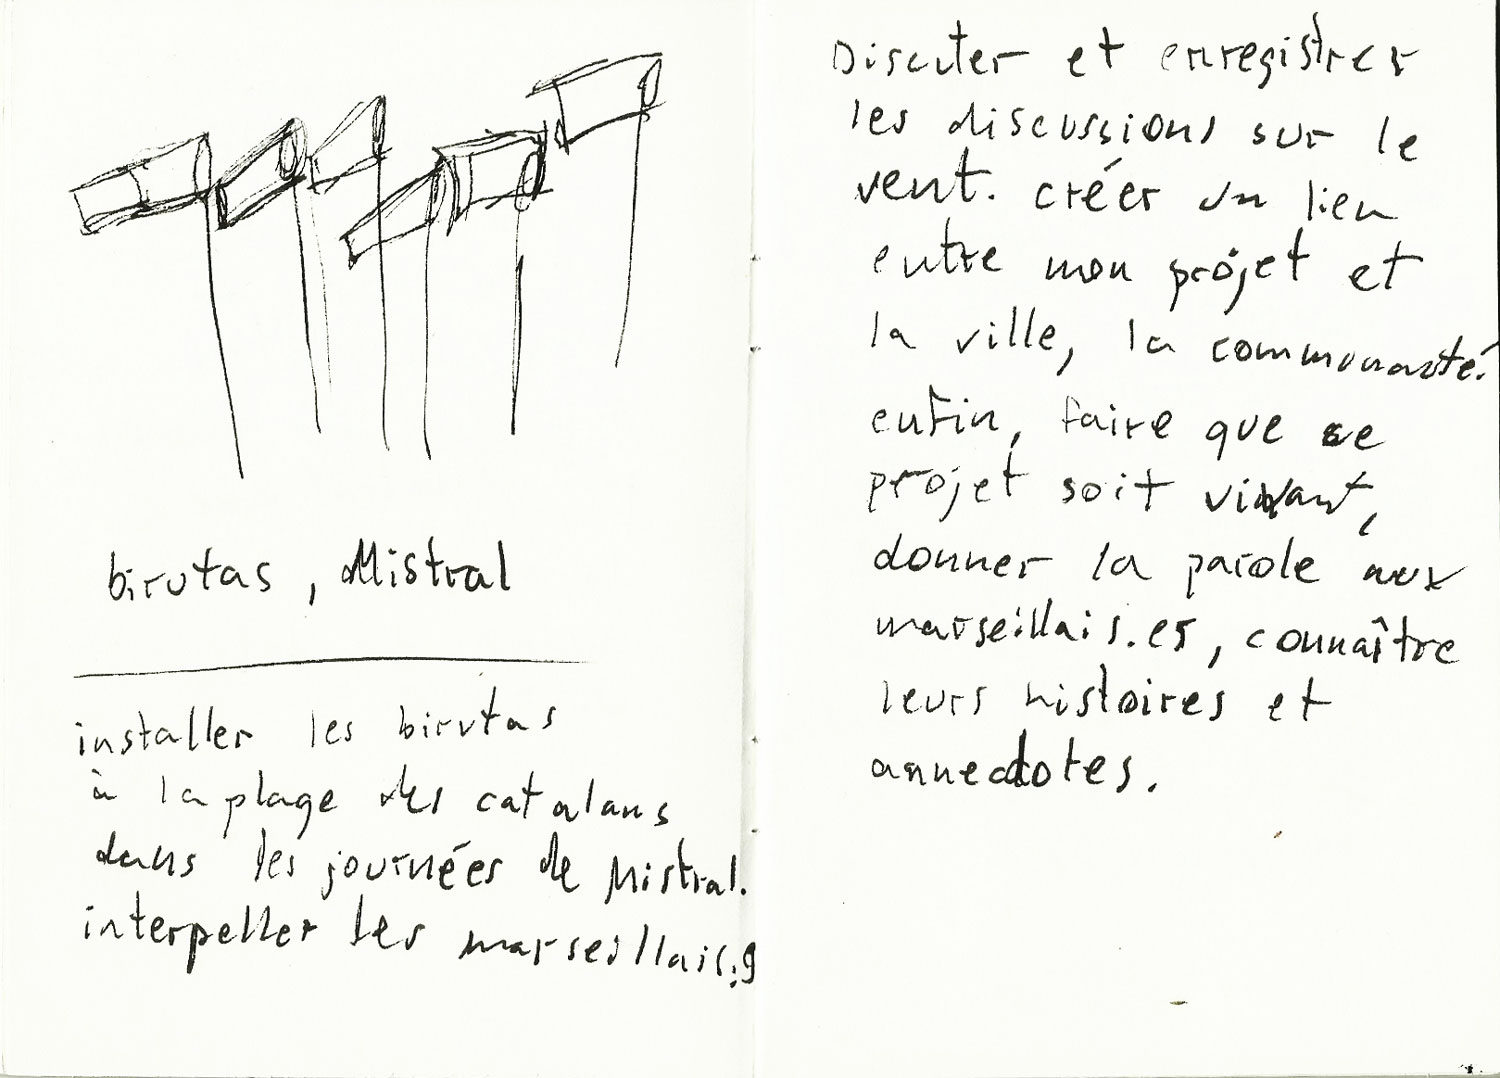 birutas, Mistral
installer les birutas
à la plage des catalans
dans les journées de Mistral.
interpeller les marseillais.
Discuter et enregistrer
les discussions sur le
vent. créer un lien
entre mon projet et
la ville, la communauté.
enfin, faire que ce
projet soit vivant,
donner la parole aux
marseillais.es, connaître
leurs histoires et
annecdotes.